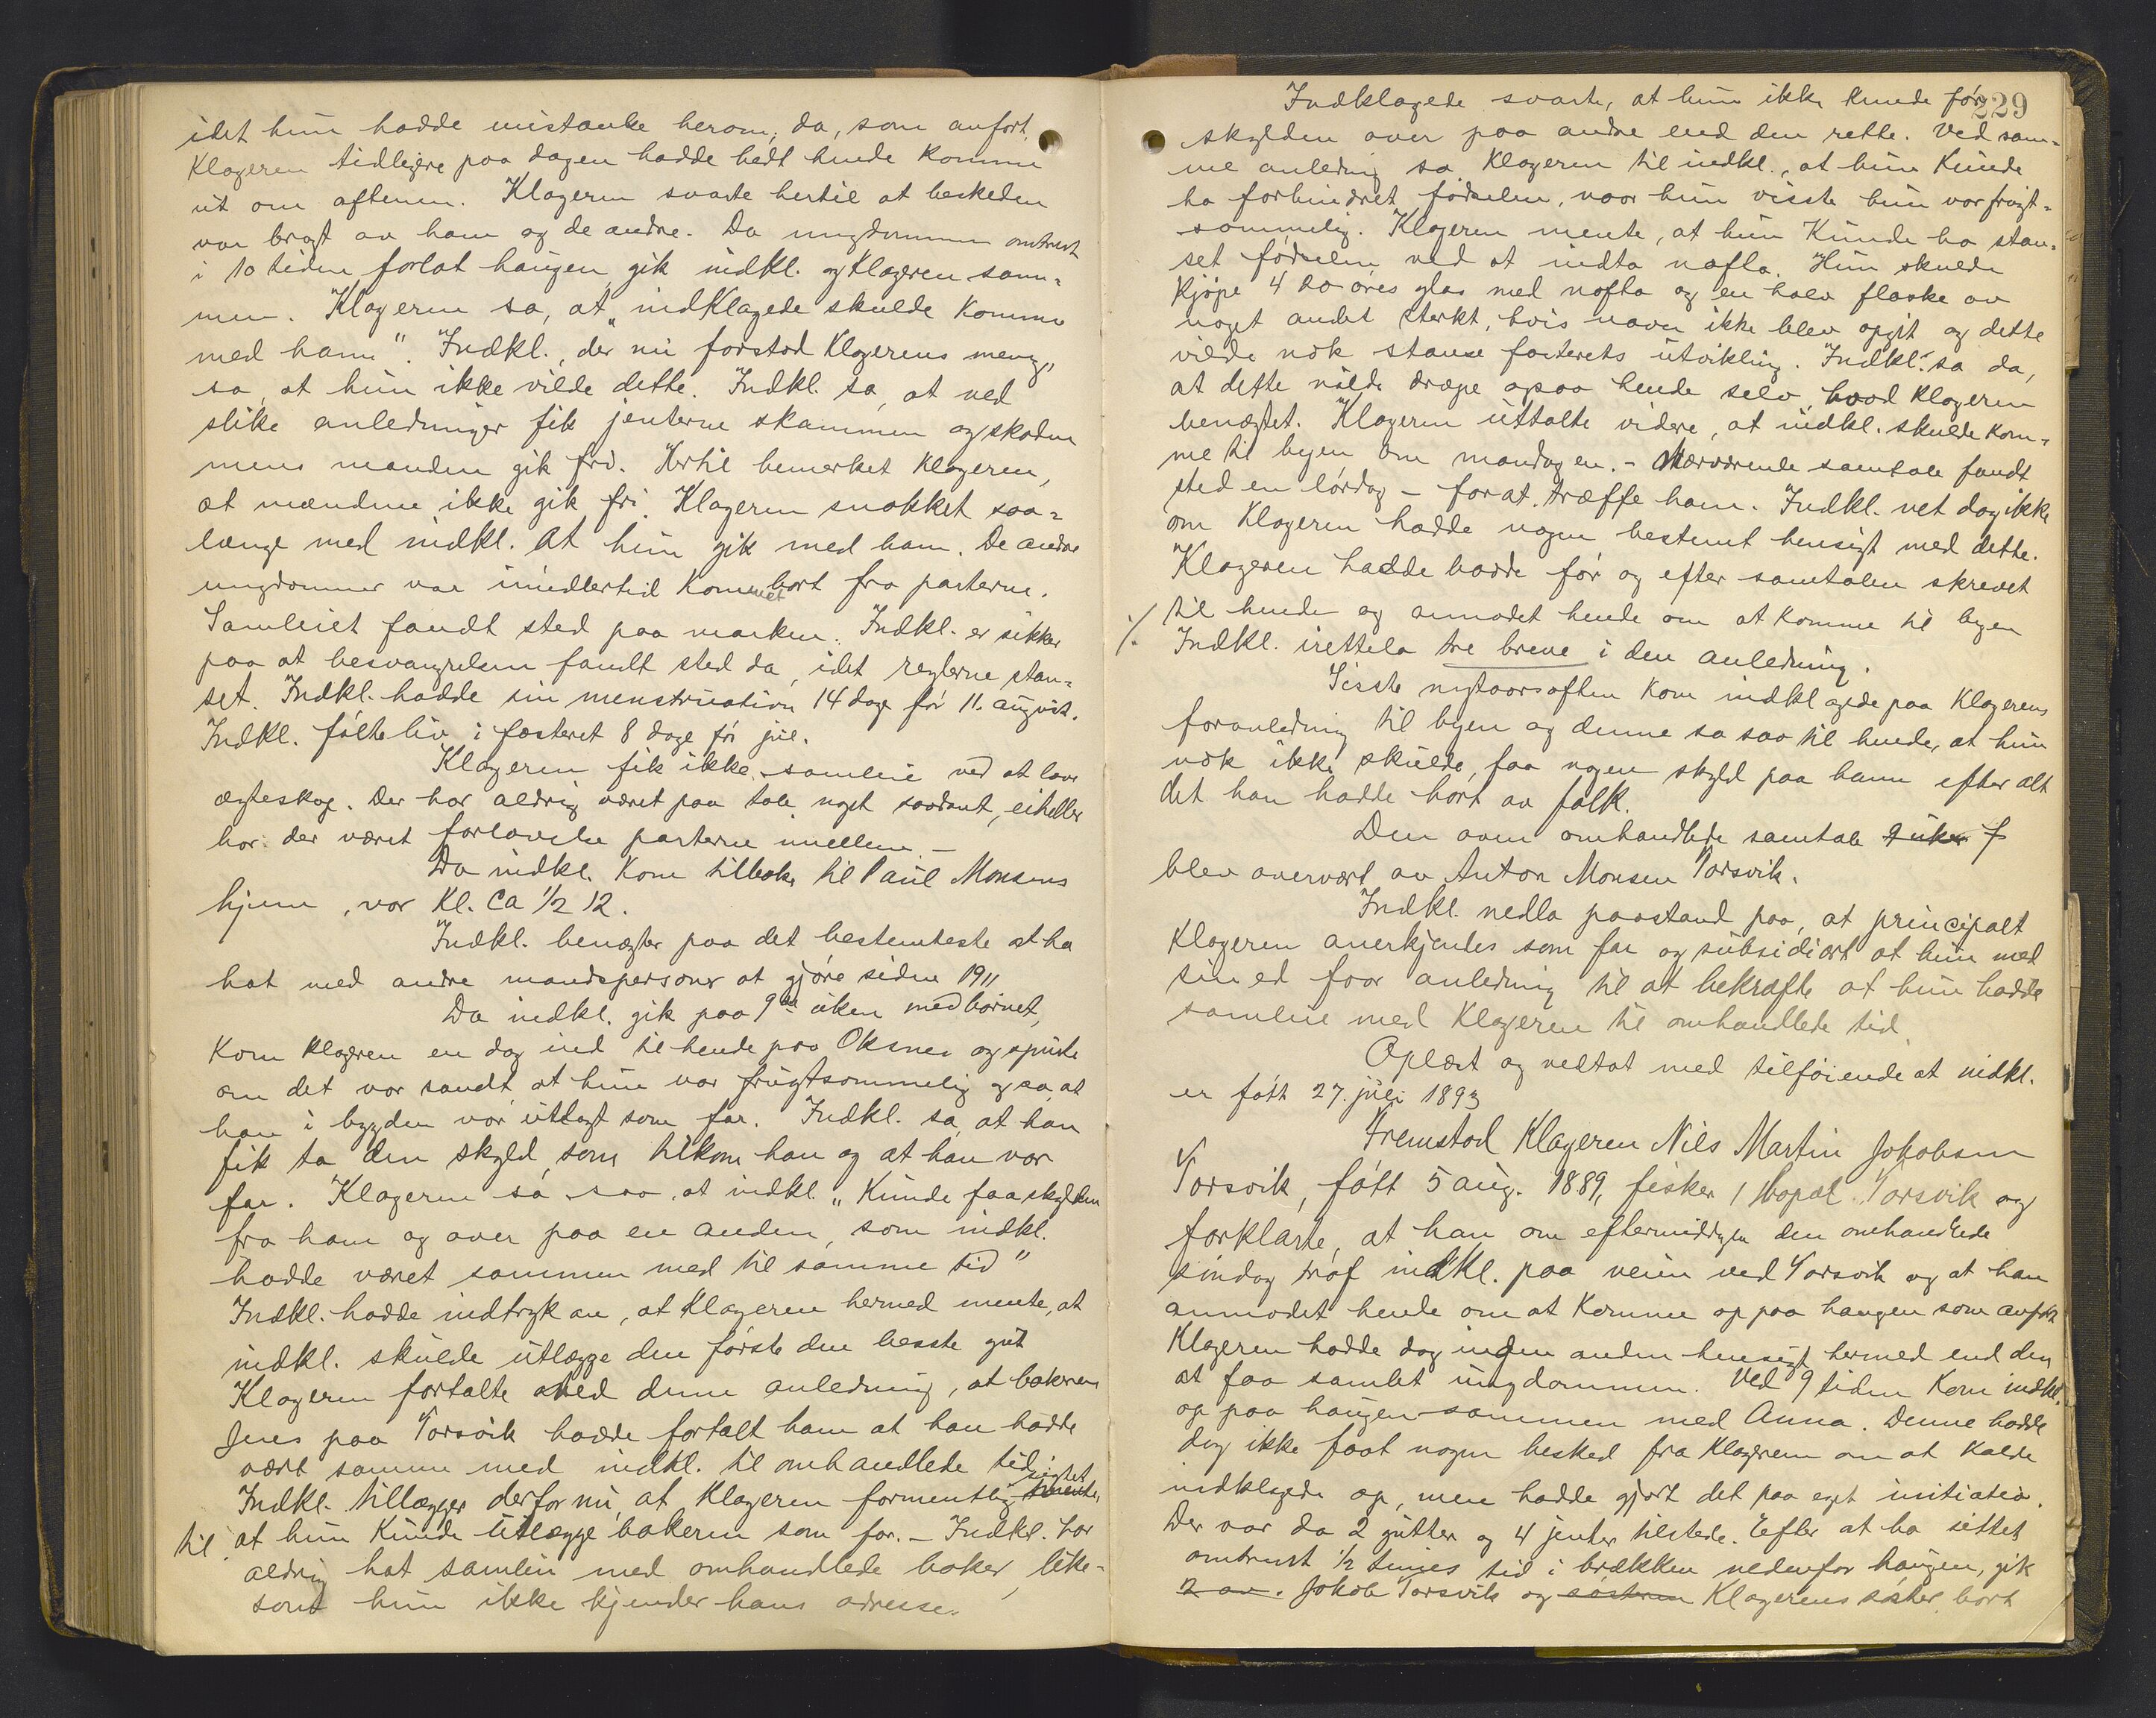 idet hun hadde mistanke herom, da, som anført,
Klageren tidligere paa dagen hadde bedt hende komme
ut om aftenen. Klageren svarte hertil at beskeden
var bragt av ham og de andre. Da ungdommen omtrent
i 10 tiden forlot haugen, gik indkl. og Klageren sam-
men. Klageren sa, at "indklagede skulde komme
med ham". Indkl., der nu forstod Klagerens mening,
sa, at hun ikke vilde dette. Indkl. sa, at ved
slike anledninger fik jenterne skammen og skaden
mens manden gik fri. Hertil bemerket Klageren,
at mændene ikke gik fri. Klageren snakket saa-
længe med indkl. at hun gik med ham. De andre
ungdommer var imidlertid kommet bort fra parterne.
Samleiet fandt sted paa marken. Indkl. er sikker
paa at besvangrelsen fandt sted da, idet reglerne stan-
set. Indkl. hadde sin menstruation 14 dage før 11. august.
Indkl. følte liv i fosteret 8 dage før jul.
Klageren fik ikke samleie ved at love
egteskap. Der har aldrig været paa tale noget saadant, eiheller
har der været forlovelse parterne imellem. -
Da indkl. kom tilbake til Paul Monsens
hjem, var Kl. ca 1/2 12.
Indkl. benegter paa det bestemteste at ha
hat med andre mandspersoner at gjøre siden 1911
Da indkl. gik paa 9de uken med barnet,
kom Klageren en dag ind til hende paa Oksnes og spurte
om det var sandt, at hun var frugtsommelig og sa, at
han i bygden var utlagt som far. Indkl. sa, at han
fik ta den skyld, som tilkom han og at han var
far. Klageren sa saa, at indkl. "kunde faa skylden
fra ham og over paa en anden, som indkl.
hadde været sammen med til samme tid"
Indkl. hadde indtryk av, at Klageren hermed mente, at
indkl. skulde utlægge den første den beste gut
Klageren fortalte ved denne anledning, at bakeren
Jens paa Torsvik hadde fortalt ham at han hadde
vært sammen med indkl. til omhandlede tid.
Indkl. tillægger derfor nu, at Klageren formentlig sigtet
til at hun kunde utlægge bakeren som far. - Indkl. har
aldrig hat samleie med omhandlede baker, like-
som hun ikke kjender hans adresse.
229
Indklagede svarte, at hun ikke kunde føre
skylden over paa andre end den rette. Ved sam-
me anledning sa Klageren til indkl., at hun kunde
ha forhindret fødselen, naar hun visste hun var frugt-
sommelig. Klageren mente, at hun kunde ha stan-
set fødselen ved at indta nafta. Hun skulde
kjøpe 4 20-øres glas med nafta og en halv flaske av
noget andet sterkt, hvis navn ikke blev opgit og dette
vilde nok stanse fosterets utvikling. Indkl. sa da,
at dette vilde dræpe ogsaa hende selv, hvad Klageren
benegtet. Klageren uttalte videre, at indkl. skulde kom-
me til byen om mandagen. - Nærværende samtale fandt
sted en lørdag - forat træffe ham. Indkl. vet dog ikke
om Klageren hadde nogen bestemt hensigt med dette.
Klageren hadde baade før og efter samtalen skrevet
·/. til hende og anmodet hende om at komme til byen
Indkl. irettela tre breve i den anledning.
Sisste nytaarsaften kom indklagede paa Klagerens
foranledning til byen og denne sa saa til hende, at hun
nok ikke skulde faa nogen skyld paa ham efter alt
det han hadde hørt av folk.
Den oven omhandlede samtale
blev overvært av Anton Monsen Torsvik.
Indkl. nedla paastand paa, at principalt
Klageren anerkjendes som far og subsidiært at hun med
sin ed faar anledning til at bekræfte at hun hadde
samleie med Klageren til omhandlede tid.
Oplæst og vedtat med tilføiende at indkl.
er født 27. juli 1893
Fremstod Klageren Nils Martin Jakobsen
Torsvik, født 5 aug. 1889, fisker, Torsvik og
forklarte, at han om eftermiddagen den omhandlede
søndag traf indkl. paa veien ved Torsvik og at han
anmodet hende om at komme op paa haugen som anført
Klageren hadde dog ingen anden hensigt hermed end den
at faa samlet ungdommen. Ved 9 tiden kom indkl.
op paa haugen sammen med Anna. Denne hadde
dog ikke faat nogen besked fra Klageren om at kalde
indklagede op, men hadde gjort det paa eget initiativ.
Der var da 2 gutter og 4 jenter tilstede. Efter at ha sittet
omtrent 1/2 times tid i brækken nedenfor haugen, gik
2 av. Jakob Torsvik og søsteren Klagerens søster bort